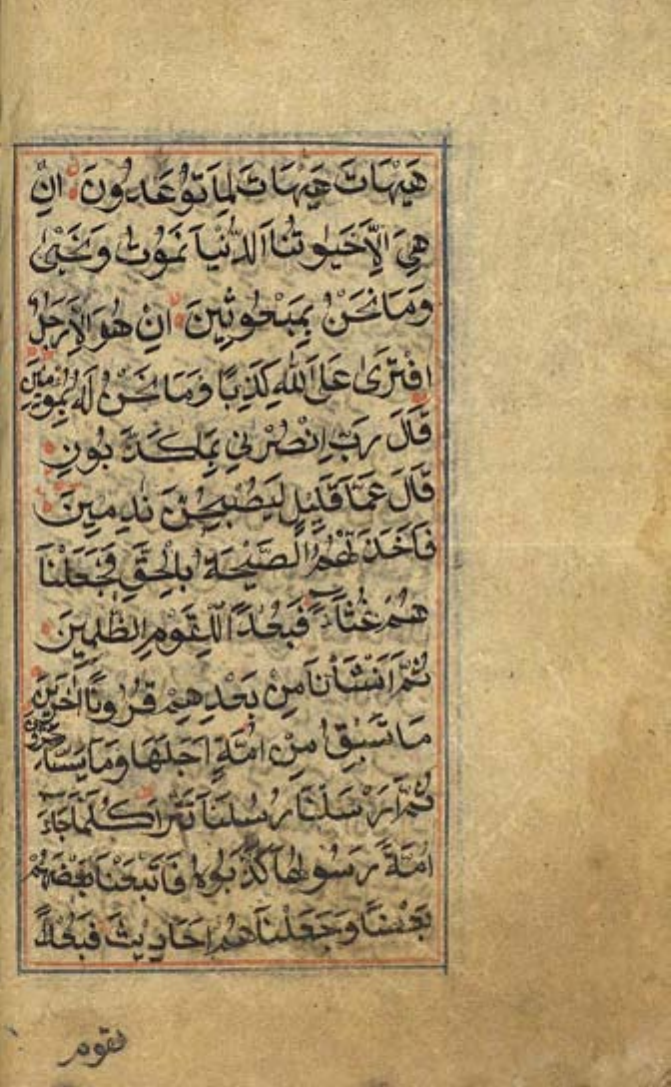 هَيْهَاتَ هَيْهَاتَ لِمَا تُوْعَدُونَ اِنْ
هِيَ اِلَّا حَيٰوتُنَا الدُّنْيَا نَمُوْتُ وَنَحْيٰى
وَمَا نَحْنُ بِمَبْعُوثِينَ اِنْ هُوَ اِلَّا رَجُلٌ
افْتَرٰى عَلَى اللّٰهِ كَذِبًا وَمَا نَحْنُ لَهُ بِمُؤْمِنِينَ
قَالَ رَبِّ انْصُرْنِي بِمَا كَذَّبُونِ
قَالَ عَمَّا قَلِيلٍ لَيُصْبِحُنَّ نٰدِمِينَ
فَاَخَذَتْهُمُ الصَّيْحَةُ بِالْحَقِّ فَجَعَلْنَا
هُمْ غُثَآءً فَبُعْدًا لِلْقَوْمِ الظّٰلِمِينَ
ثُمَّ اَنْشَأْنَا مِنْ بَعْدِهِمْ قُرُونًا اٰخَرِينَ
مَا تَسْبِقُ مِنْ اُمَّةٍ اَجَلَهَا وَمَا يَسْتَاْخِرُونَ
ثُمَّ اَرْسَلْنَا رُسُلَنَا تَتْرَا كُلَّمَا جَآءَ
اُمَّةً رَسُولُهَا كَذَّبُوهُ فَاَتْبَعْنَا بَعْضَهُمْ
بَعْضًا وَجَعَلْنَاهُمْ اَحَادِيثَ فَبُعْدًا
لقوم